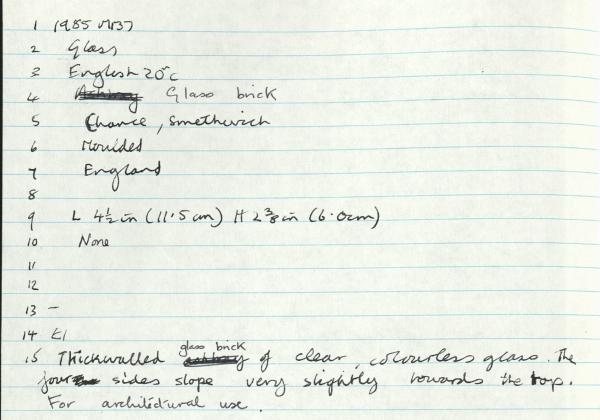 1 1985 M37
2 Glass
3 English 20°c
4 Glass brick
5 Chance, Smethwich
6 Moulded
7 England
8
9 L 4½ in (11.5 cm) H 2⅜ in (6.0cm)
10 None
11
12
13 —
14 £1
15 Thickwalled glass brick of clear, colourless glass. The
four sides slope very slightly towards the top.
For architectural use.